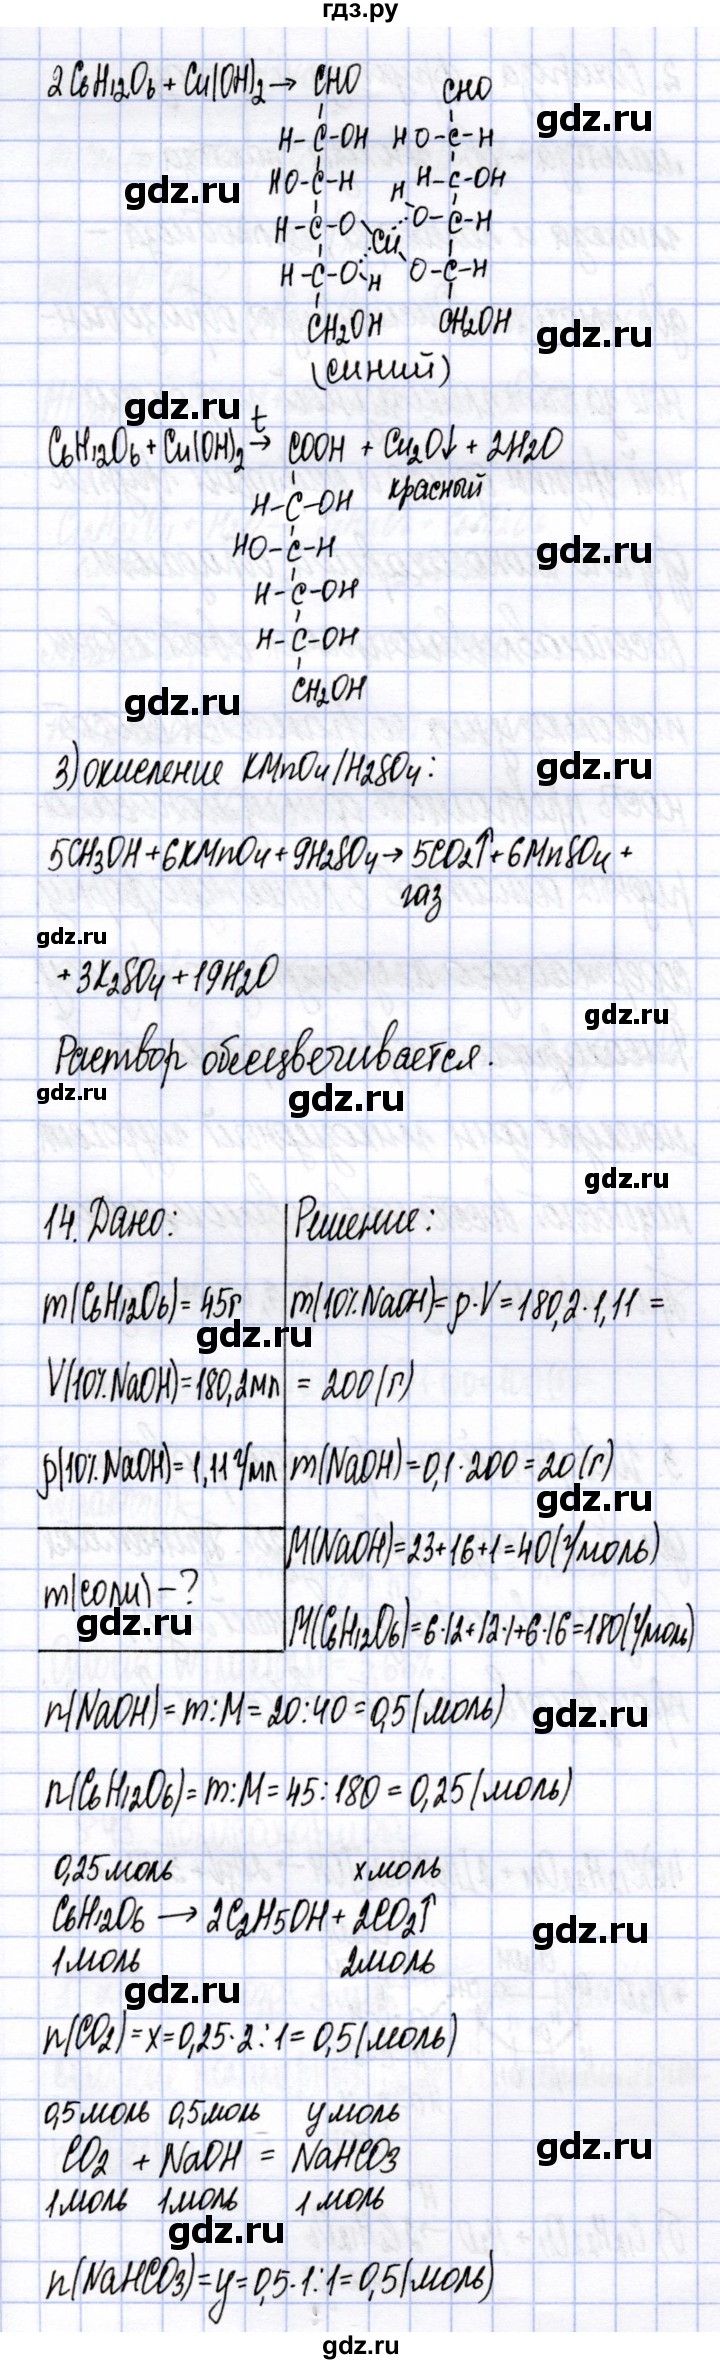 гдз.ру
2C6H12O6 + Cu(OH)2 → CHO CHO
H-C-OH HO-C-H
HO-C-H H H-C-OH
H-C-O Cu O-C-H
H-C-O H O-C-H
CH2OH CH2OH
(синий)
C6H12O6 + Cu(OH)2 t→ COOH + Cu2O↓ + 2H2O
красный
H-C-OH
HO-C-H
H-C-OH
H-C-OH
CH2OH
3) окисление KMnO4/H2SO4:
5CH3OH + 6KMnO4 + 9H2SO4 → 5CO2↑ + 6MnSO4 +
газ
+ 3K2SO4 + 19H2O
Раствор обесцвечивается.
14. Дано: Решение:
m(C6H12O6) = 45г m(10% NaOH) = ρ·V = 180,2·1,11 =
V(10% NaOH) = 180,2мл = 200(г)
ρ(10% NaOH) = 1,11 г/мл m(NaOH) = 0,1·200 = 20(г)
M(NaOH) = 23+16+1 = 40(г/моль)
m(соли) - ?
M(C6H12O6) = 6·12+12·1+6·16 = 180(г/моль)
n(NaOH) = m:M = 20:40 = 0,5(моль)
n(C6H12O6) = m:M = 45:180 = 0,25(моль)
0,25моль xмоль
C6H12O6 → 2C2H5OH + 2CO2↑
1моль 2моль
n(CO2) = x = 0,25·2:1 = 0,5(моль)
0,5моль 0,5моль yмоль
CO2 + NaOH = NaHCO3
1моль 1моль 1моль
n(NaHCO3) = y = 0,5·1:1 = 0,5(моль)
gdz.ru